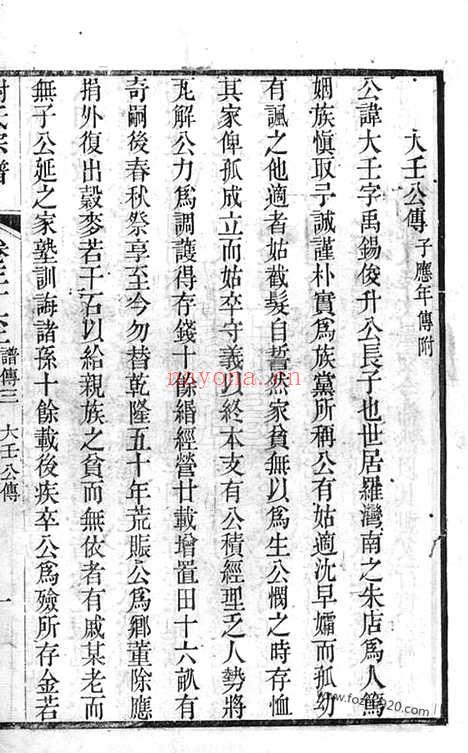 大壬公傳 子應年傳附
公諱大壬字禹錫俊升公長子也世居羅灣南之朱店爲人篤
姻族愼取予誠謹朴實爲族黨所稱公有姑適沈早孀而孤幼
有諷之他適者姑截髮自誓然家貧無以爲生公憫之時存恤
其家俾孤成立而姑卒守義以終本支有公積經理乏人勢將
瓦解公力爲調護得存錢十餘緡經營廿載增置田十六畝有
奇嗣後春秋祭享至今勿替乾隆五十年荒賑公爲鄕董除應
捐外復出穀麥若干石以給親族之貧而無依者有戚某老而
無子公延之家塾訓誨諸孫十餘載後疾卒公爲殮所存金若
氏宗譜
譜傳三 大壬公傳 一
nayona.cn
www.fozhu920.com